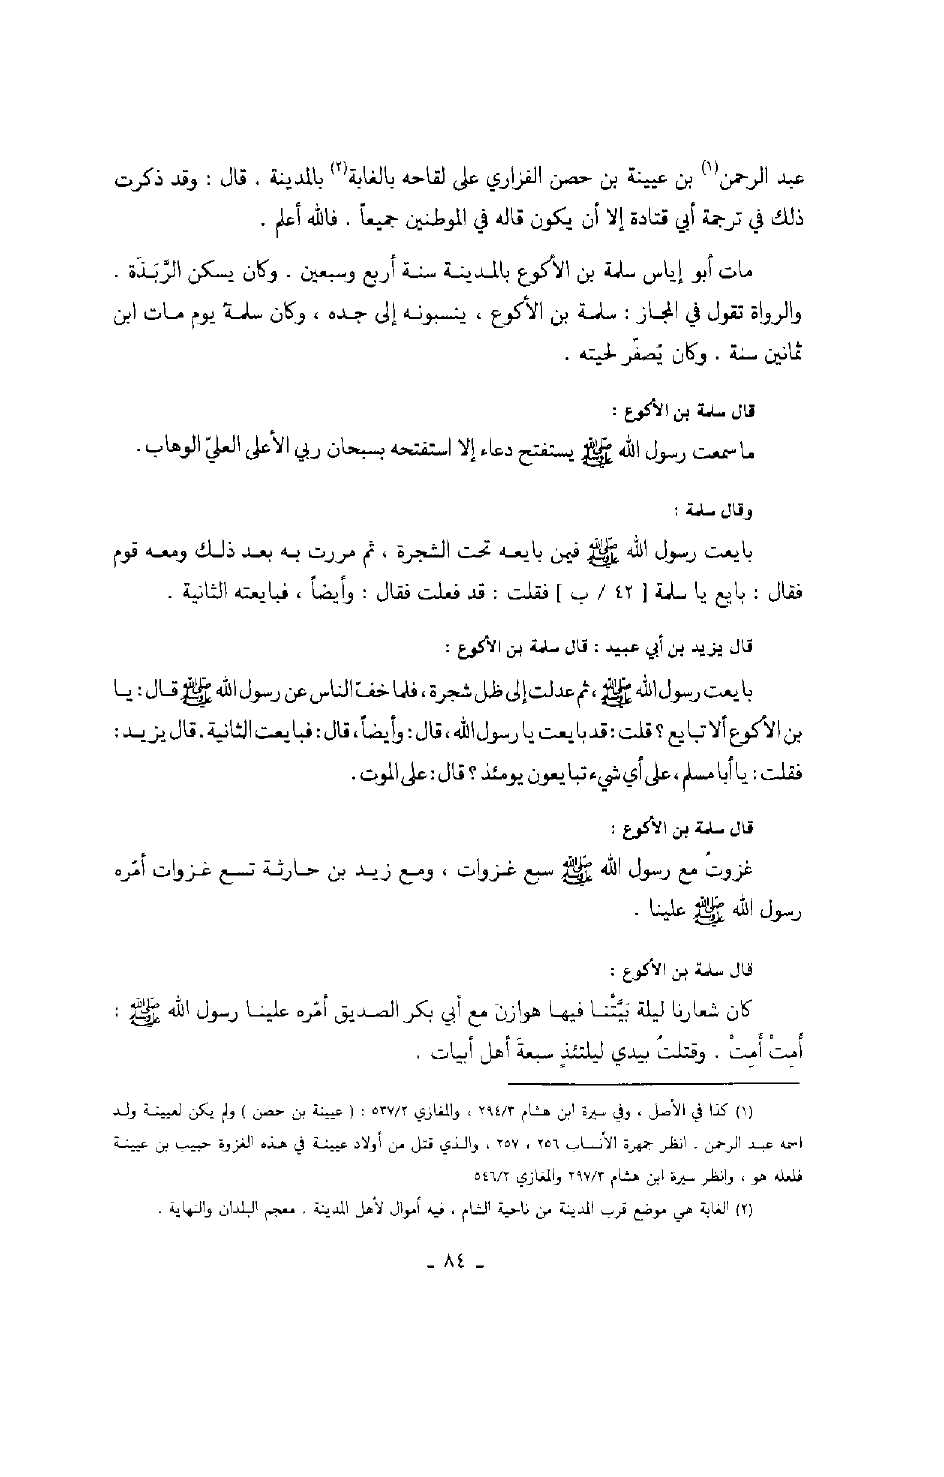 عبد الرحمن(١) بن عيينة بن حصن الفزاري على لقاحه بالغابة(٢) بالمدينة . قال : وقد ذكرت
ذلك في ترجمة أبي قتادة إلا أن يكون قاله في الموطنين جميعاً . فالله أعلم .
مات أبو إياس سلمة بن الأكوع بالمدينة سنة أربع وسبعين . وكان يسكن الرَّبَذَة .
والرواة تقول في المجاز : سلمة بن الأكوع ، ينسبونه إلى جده ، وكان سلمة يوم مات ابن
ثمانين سنة . وكان يُصفّر لحيته .
قال سلمة بن الأكوع :
ما سمعت رسول الله ﷺ يستفتح دعاء إلا استفتحه بسبحان ربي الأعلى العليّ الوهاب .
وقال سلمة :
بايعت رسول الله ﷺ فيمن بايعه تحت الشجرة ، ثم مررت به بعد ذلك ومعه قوم
فقال : بايع يا سلمة [ ٤٢ / ب ] فقلت : قد فعلت فقال : وأيضاً ، فبايعته الثانية .
قال يزيد بن أبي عبيد : قال سلمة بن الأكوع :
بايعت رسول الله ﷺ ، ثم عدلت إلى ظل شجرة ، فلما خفّ الناس عن رسول الله ﷺ قال : يا
بن الأكوع ألا تبايع ؟ قلت : قد بايعت يا رسول الله ، قال : وأيضاً ، قال : فبايعت الثانية . قال يزيد :
فقلت : يا أبا مسلم ، على أي شيء تبايعون يومئذ ؟ قال : على الموت .
قال سلمة بن الأكوع :
غزوتُ مع رسول الله ﷺ سبع غزوات ، ومع زيد بن حارثة تسع غزوات أمّره
رسول الله ﷺ علينا .
قال سلمة بن الأكوع :
كان شعارنا ليلة بَيَّتْنا فيها هوازن مع أبي بكر الصديق أمّره علينا رسول الله ﷺ :
أَمِتْ أَمِتْ . وقتلتُ بيدي ليلتئذٍ سبعةَ أهل أبيات .
(١) كذا في الأصل ، وفي سيرة ابن هشام ٢٩٤/٣ ، والمغازي ٥٣٧/٢ : ( عيينة بن حصن ) ولم يكن لعيينة ولد
اسمه عبد الرحمن . انظر جمهرة الأنساب ٢٥٦ ، ٢٥٧ ، والذي قتل من أولاد عيينة في هذه الغزوة حبيب بن عيينة
فلعله هو ، وانظر سيرة ابن هشام ٢٩٧/٣ والمغازي ٥٤٦/٢
(٢) الغابة هي موضع قرب المدينة من ناحية الشام ، فيه أموال لأهل المدينة . معجم البلدان والنهاية .
- ٨٤ -